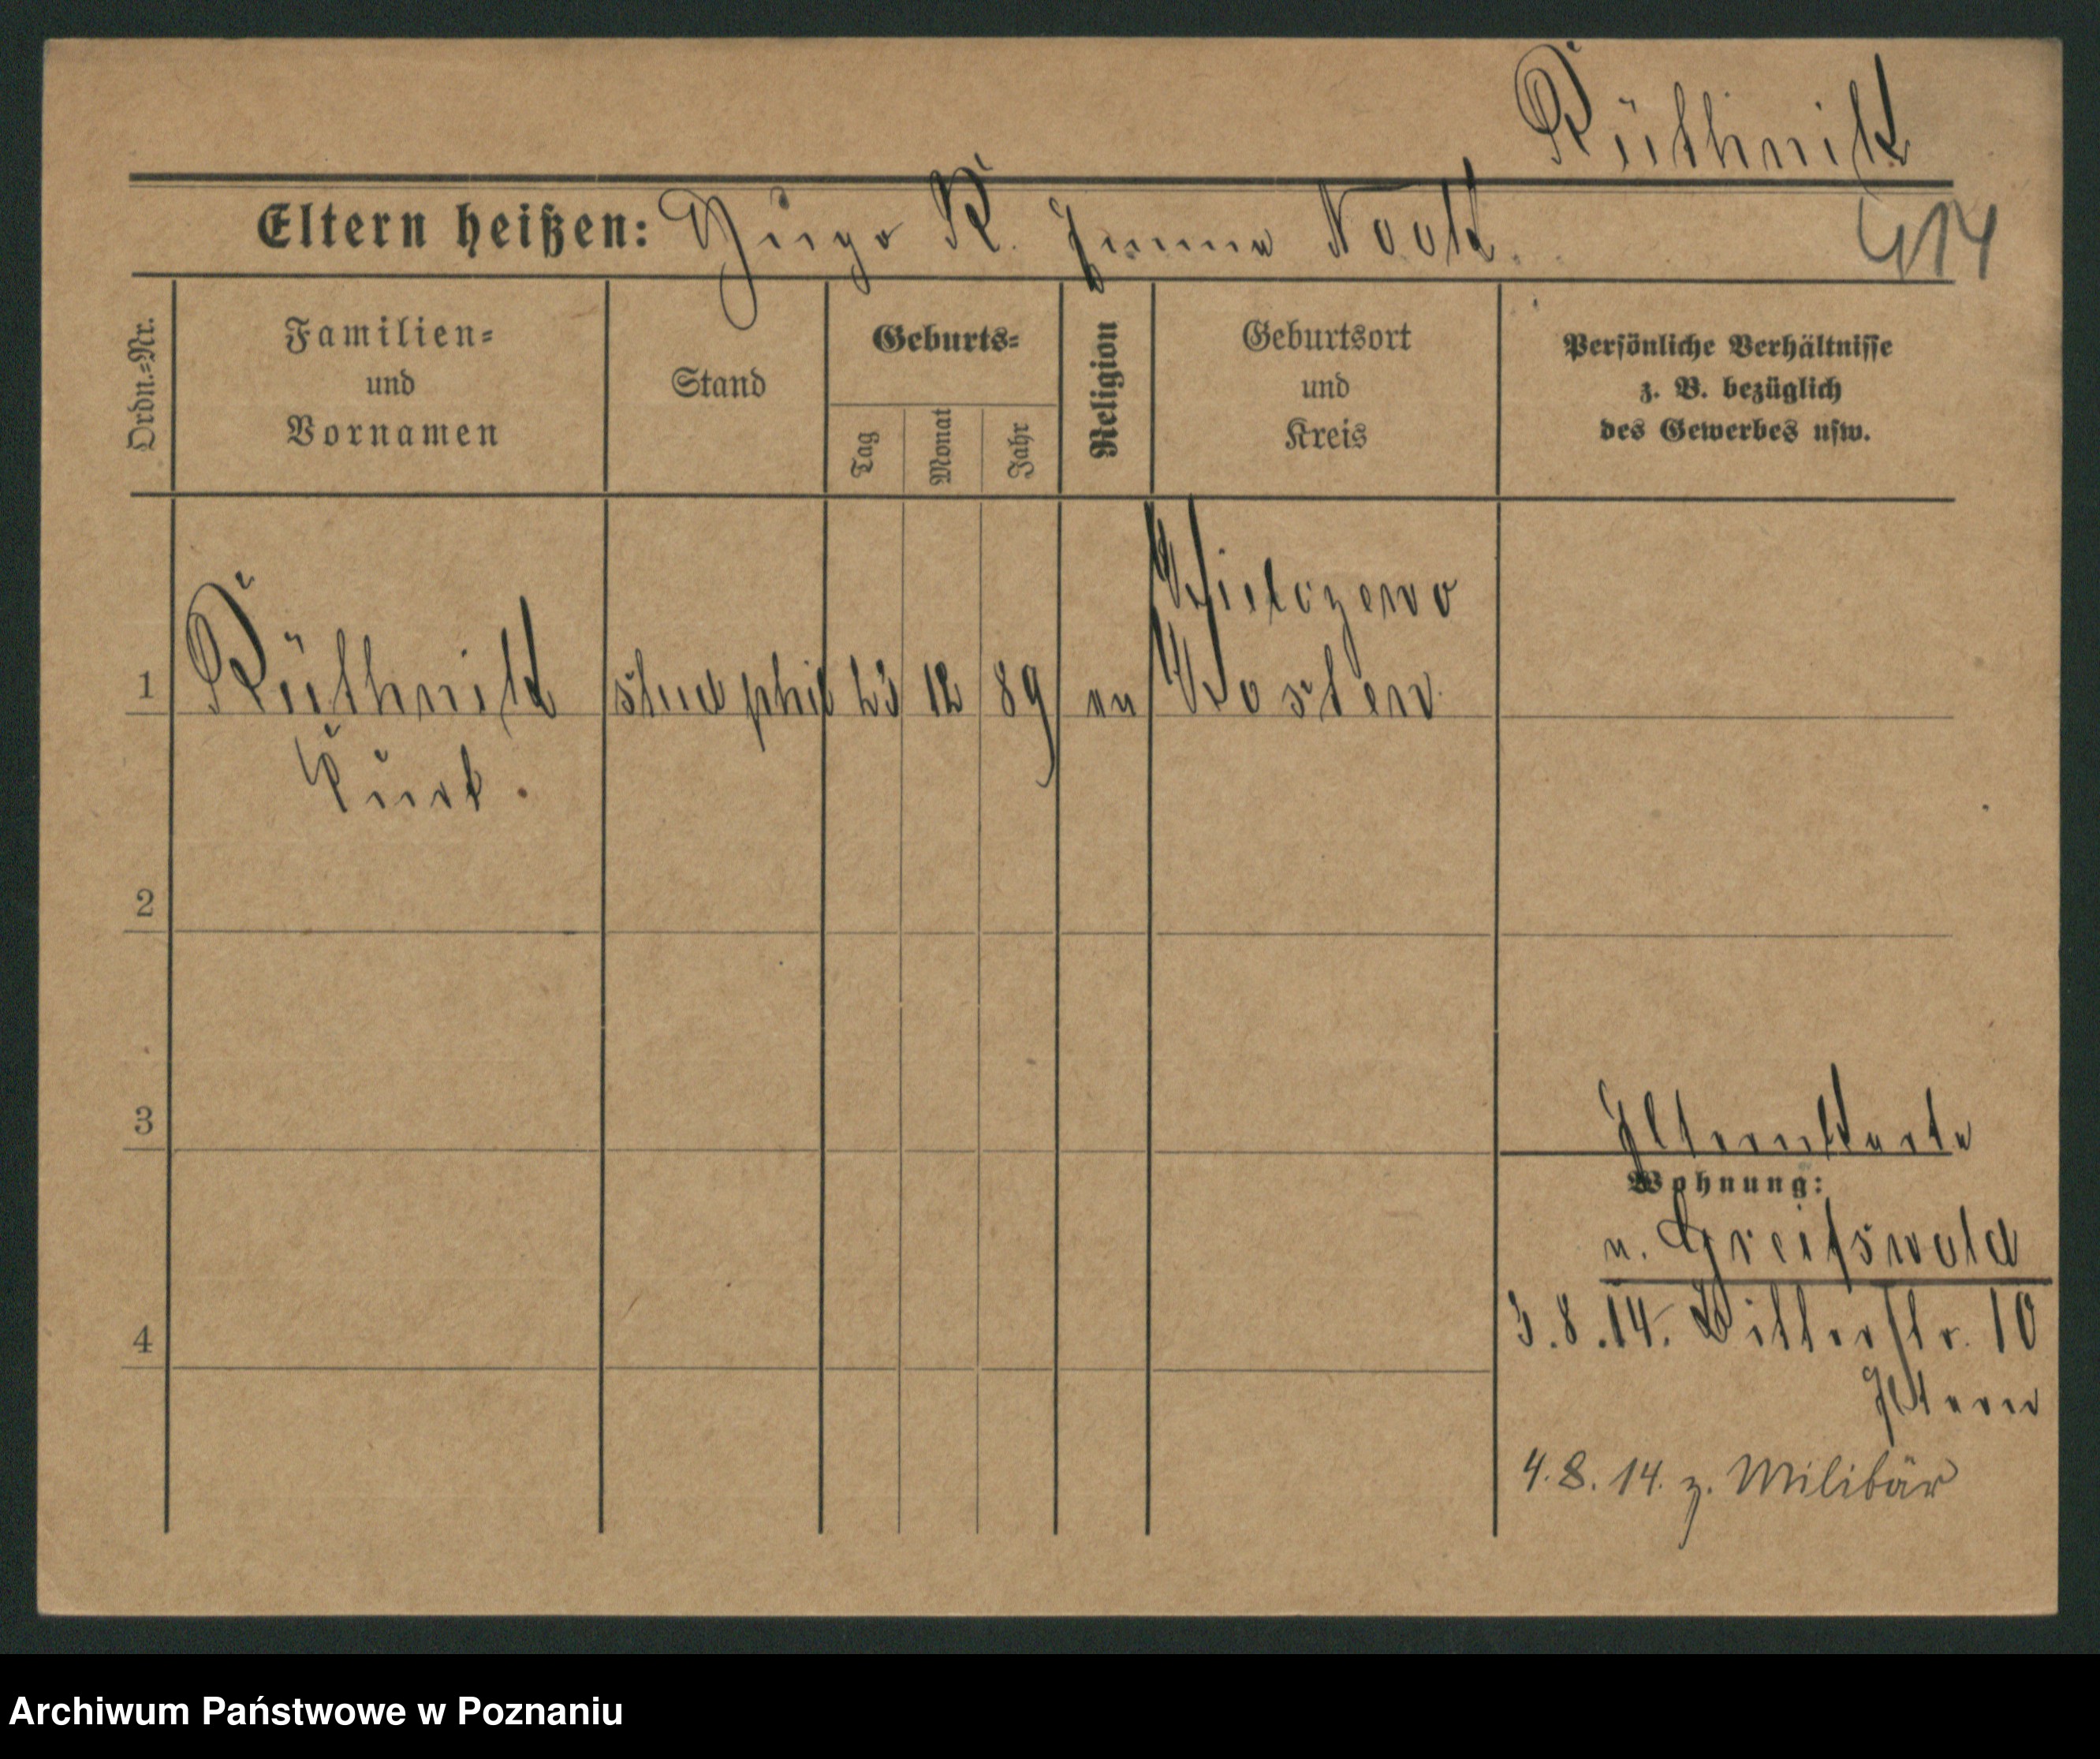 Rüthnik
Eltern heißen: Hugo R. Emma Noak
414
Ordn.-Nr.
Familien-
und
Vornamen
Stand
Geburts-
Tag
Monat
Jahr
Religion
Geburtsort
und
Kreis
Persönliche Verhältnisse
z. B. bezüglich
des Gewerbes usw.
1
Rüthnik
Kurt.
stud phil
23
12
89
ev
Kosten
2
3
4
Elternkarte
Wohnung:
n. Greifswald
3.8.14. Ritterstr. 10
Eltern
4.8.14. z. Militär
Archiwum Państwowe w Poznaniu